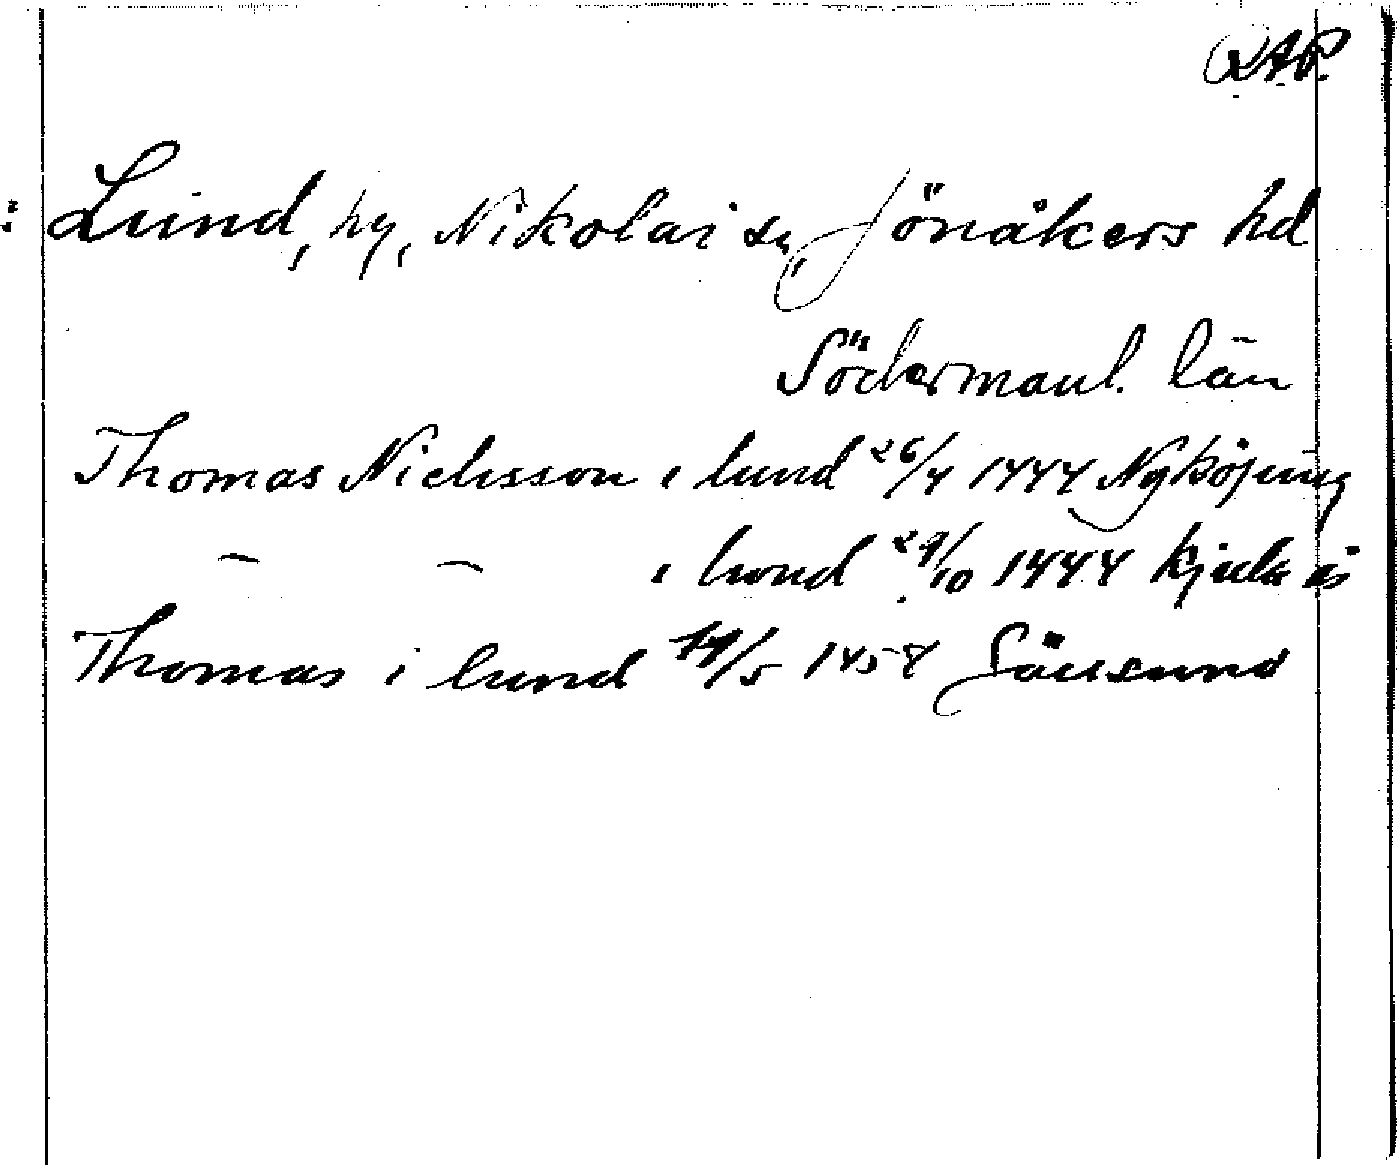 RAP.
Lund, by, Nikolai sn, Jönåkers hd
Södermanl. län
Thomas Niclisson i lund 26/4 1444 Nyköping
— — i lund 29/10 1444
Thomas i lund 14/5 1458